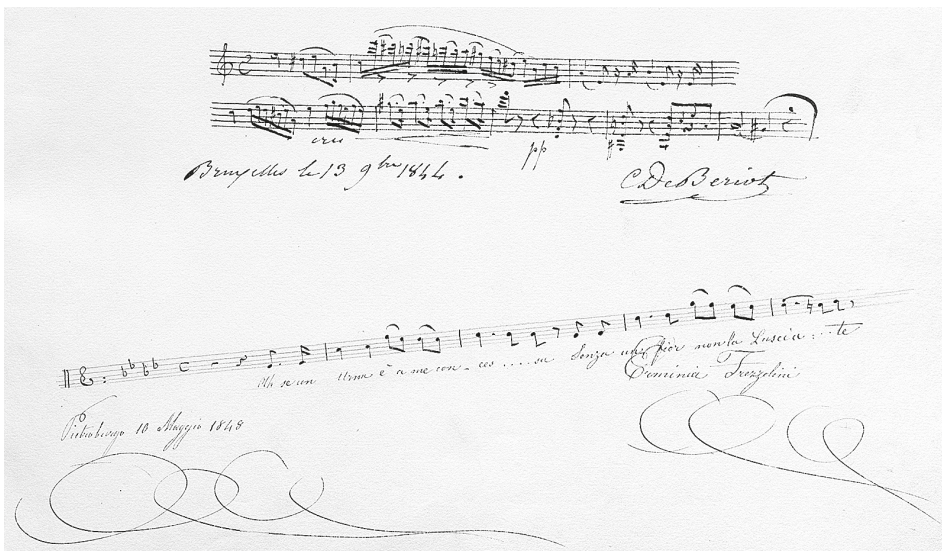 cres
pp
Bruxelles le 13 9bre 1844.
C De Beriot
Ah se un Urna è a me con_ces.....sa Senza un fior non la Lascia...te
Erminia Frezzolini
Pietroburgo 10 Maggio 1848